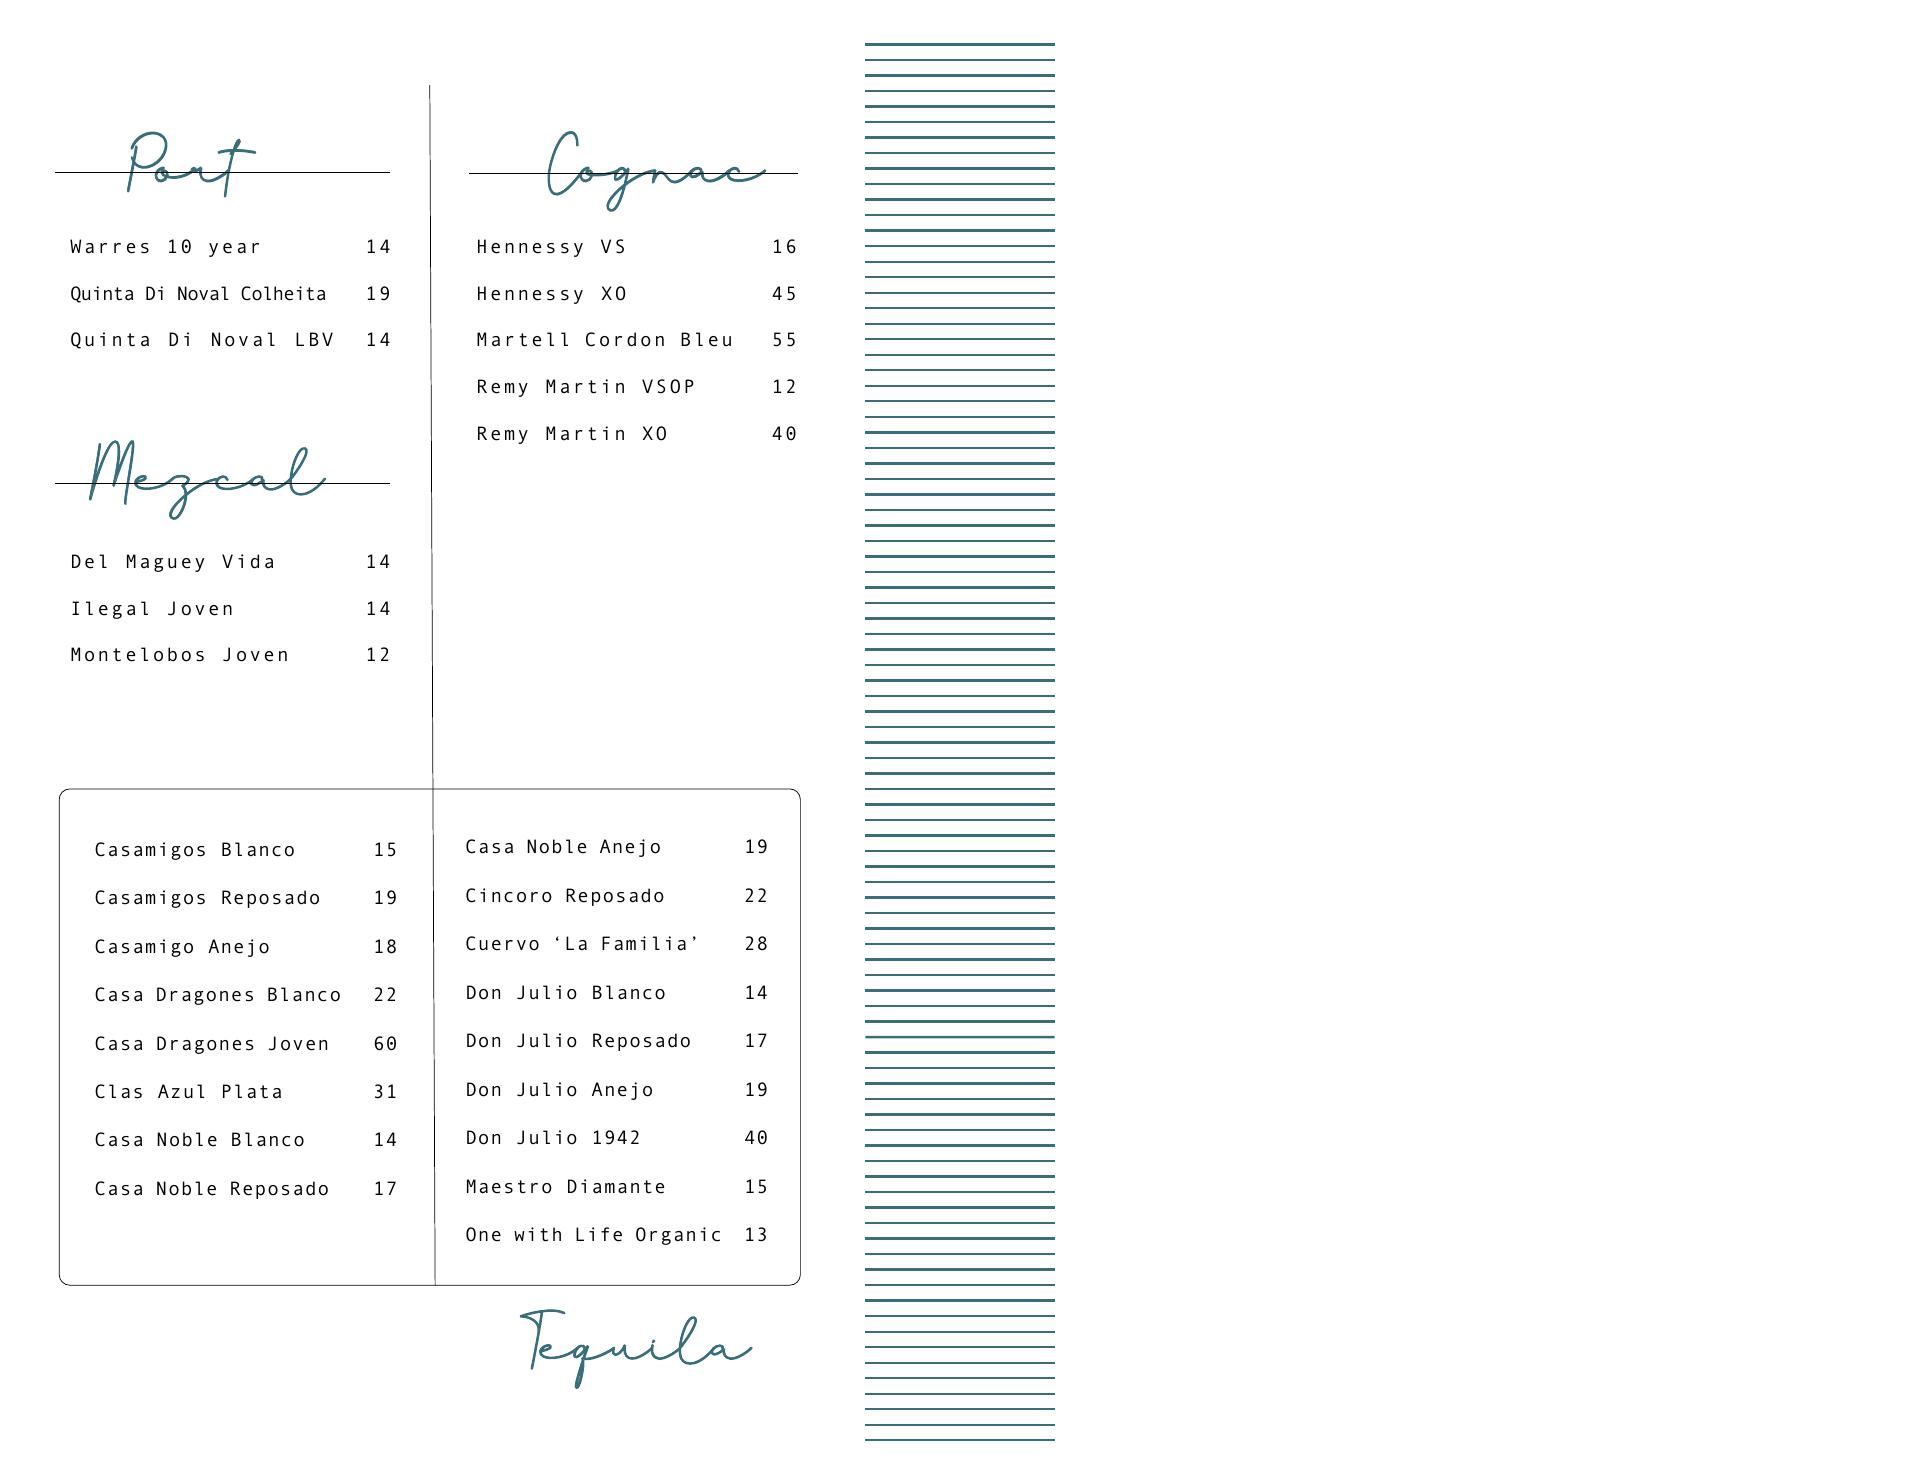 Port
Warres 10 year 14
Quinta Di Noval Colheita 19
Quinta Di Noval LBV 14
Mezcal
Del Maguey Vida 14
Ilegal Joven 14
Montelobos Joven 12
Cognac
Hennessy VS 16
Hennessy XO 45
Martell Cordon Bleu 55
Remy Martin VSOP 12
Remy Martin XO 40
Casamigos Blanco 15
Casamigos Reposado 19
Casamigo Anejo 18
Casa Dragones Blanco 22
Casa Dragones Joven 60
Clas Azul Plata 31
Casa Noble Blanco 14
Casa Noble Reposado 17
Casa Noble Anejo 19
Cincoro Reposado 22
Cuervo ‘La Familia’ 28
Don Julio Blanco 14
Don Julio Reposado 17
Don Julio Anejo 19
Don Julio 1942 40
Maestro Diamante 15
One with Life Organic 13
Tequila